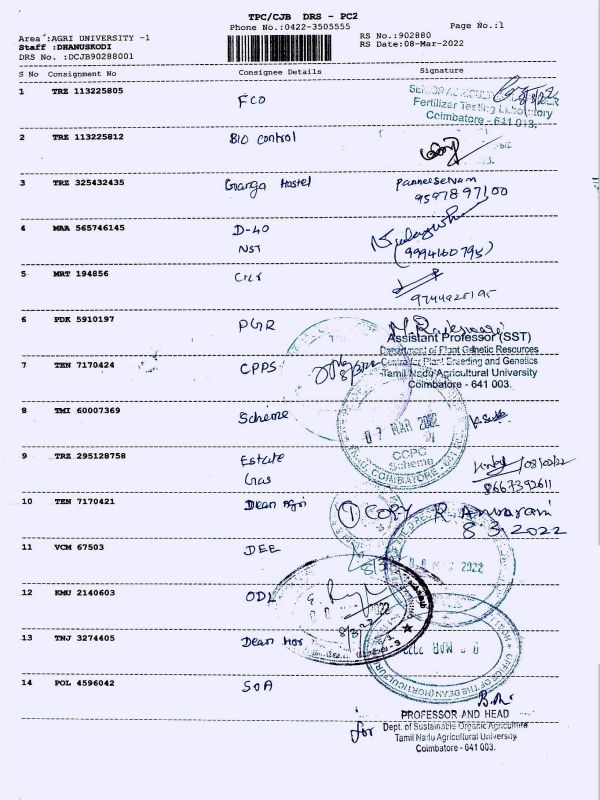 TPC/CJB DRS - PC2
Phone No.:0422-3505555
Page No.:1
Area :AGRI UNIVERSITY -1
Staff :DHANUSKODI
DRS No. :DCJB90288001
RS No.:902880
RS Date:08-Mar-2022
S No Consignment No Consignee Details Signature
1 TRZ 113225805 FCO
Fertilizer Testing Laboratory
Coimbatore - 641 013.
2 TRZ 113225812 Bio control
3 TRZ 325432435 Ganga Hostel Panneeselvam
9597897100
4 MAA 565746145 D-40
NST (9994160795)
5 MRT 194856
9744925195
6 PDK 5910197 PGR
Assistant Professor (SST)
Department of Plant Genetic Resources
Centre for Plant Breeding and Genetics
Tamil Nadu Agricultural University
Coimbatore - 641 003.
7 TEN 7170424 CPPS 8/3/22
8 TMI 60007369 Scheme
07 MAR 2022
Scheme
COIMBATORE
9 TRZ 295128758 Estate
Gas
8667392611
10 TEN 7170421 Dean Agri 1 COPY R. Anuvarani
8 3 2022
11 VCM 67503 DEE
12 KMU 2140603 ODL
8/3/22
13 TNJ 3274405 Dean Hor
MAR
OFFICE OF THE DEAN (HORTICULTURE)
14 POL 4596042 SOA
PROFESSOR AND HEAD
for Dept. of Sustainable Organic Agriculture
Tamil Nadu Agricultural University
Coimbatore - 641 003.